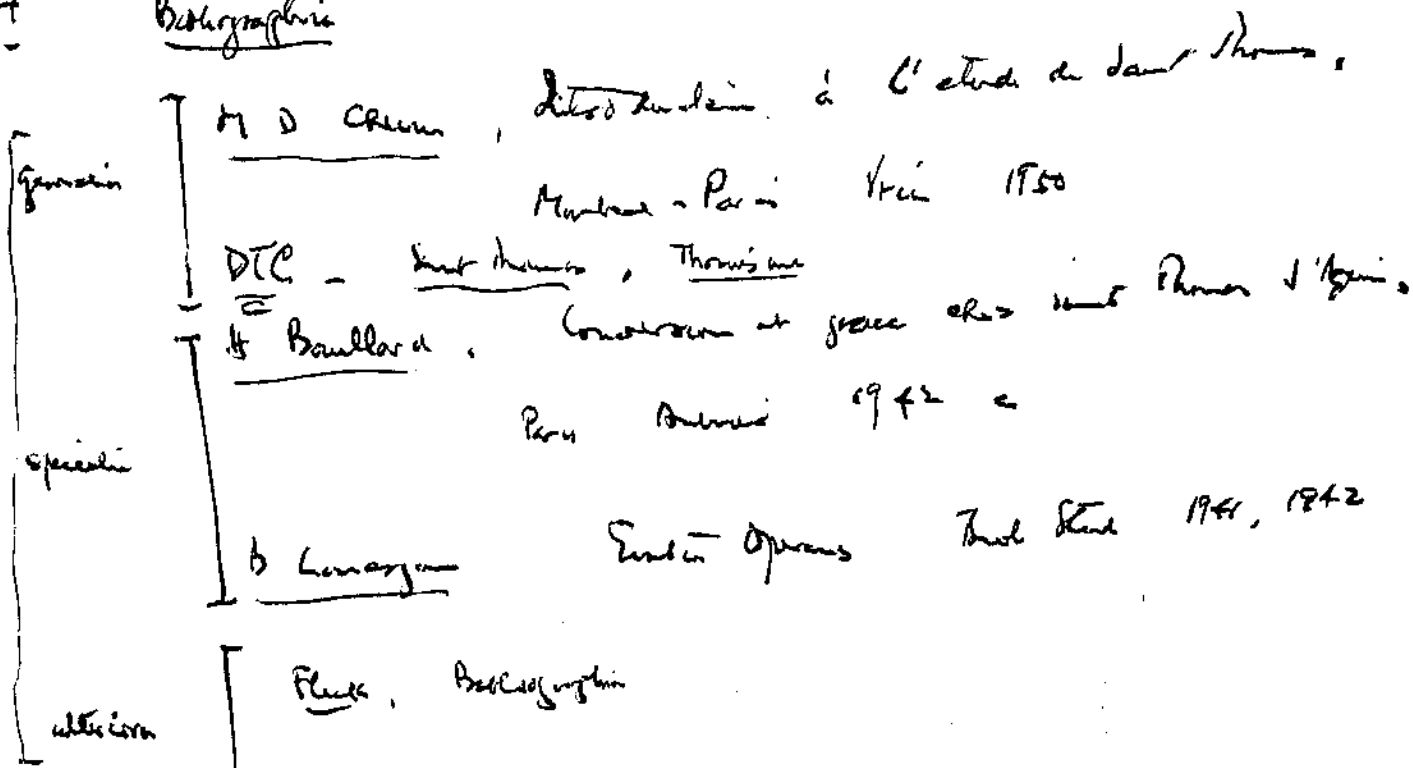 Bibliographia
generalia
M D Chenu, Introduction à l'etude de saint Thomas,
Montreal - Paris Vrin 1950
DTC - saint Thomas, Thomisme
H Bouillard, Conversion et grace chez saint Thomas d'Aquin,
Paris Aubier 1942
specialia
B Lonergan Gratia Operans Theol Stud 1941, 1942
ulteriora
Flick, Bibliographia